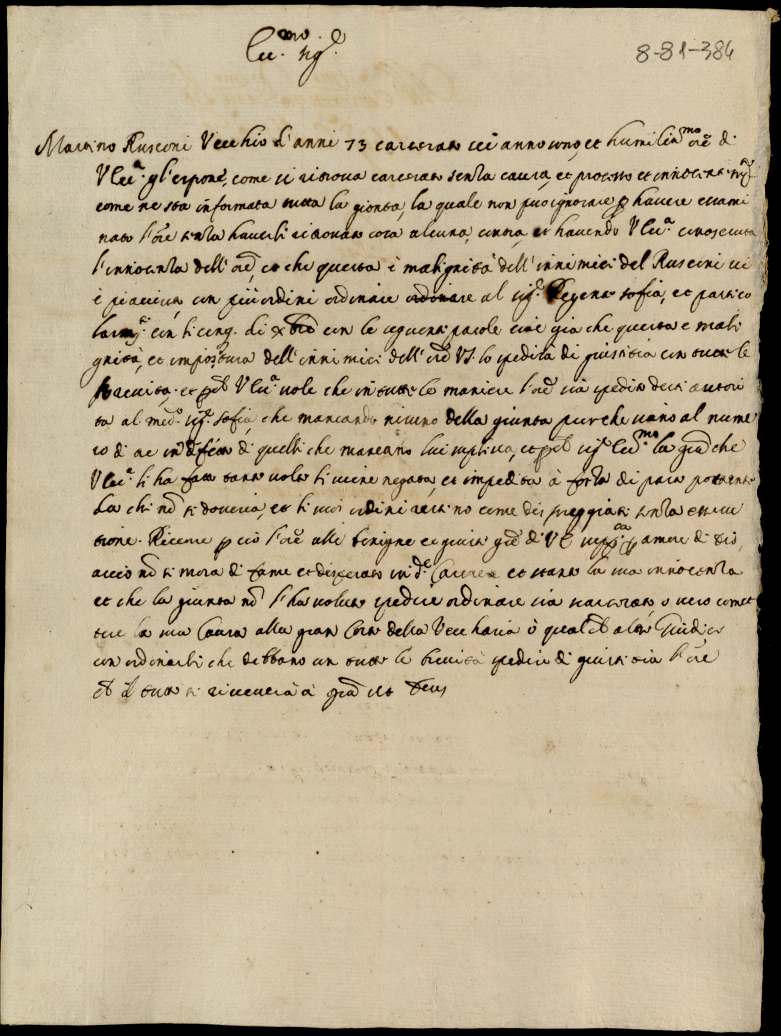 Ecc.mo Sig.e
8-81-384
Martino Rusconi Vecchio d'anni 73 carcerato sei anni sono, et humiliss.mo ore di
V Ecc.a gl'espone, come si ritrova carcerato senza causa, et processo et innocentem.te
come ne sta informata tutta la gionta, la quale non puo ignorare p havere esami
nato l'ore senza haverli ritrovato cosa alcuna, contra, et havendo V Ecc.a conosciuta
l'innocenza dell'ore, et che questa è malignità dell'innimici del Rusconi si
è piaciuta con più ordini ordinare ordinare al sig.r Regente sofia, et partico
larm.te con li cinq. di Xbre con le seguenti parole cioè già che questa è mali
gnità, et impostura dell'innimici dell'ore VS. lo spedisca di giustitia con tutte le
brevità, et p V Ecc.a vole che in tutte le maniere l'ore sia spedito detti autori
tà al med.o sig.r sofia, che mancando nisuno della giunta purche siano al nume
ro di tre in difetto di quelli che mancano lui suplisca, et sig.r Ecc.mo la gra che
V Ecc.a li ha fatto tante volte li viene negata, et impedita à forza di pare potente
da chi no si doveria, et li suoi ordini restino come dispreggiati senza essecu
tione. Ricorre p ciò l'ore alli benigne et giusta gra di V E supp.ca p amore di Dio,
acciò no si mora di fame et disperato in d.e Carcere et stante la sua innocenza
et che la giunta no l'ha voluto spedire ordinare sia scarcerato, o vero comet
tere la sua Causa alla gran Corte della Vecchiaria ò qualche altro Giudice
con ordinarli che debbano con tutte le brevità spedire di giustitia l'ore
che il tutto si riceverà à gra ut Deus